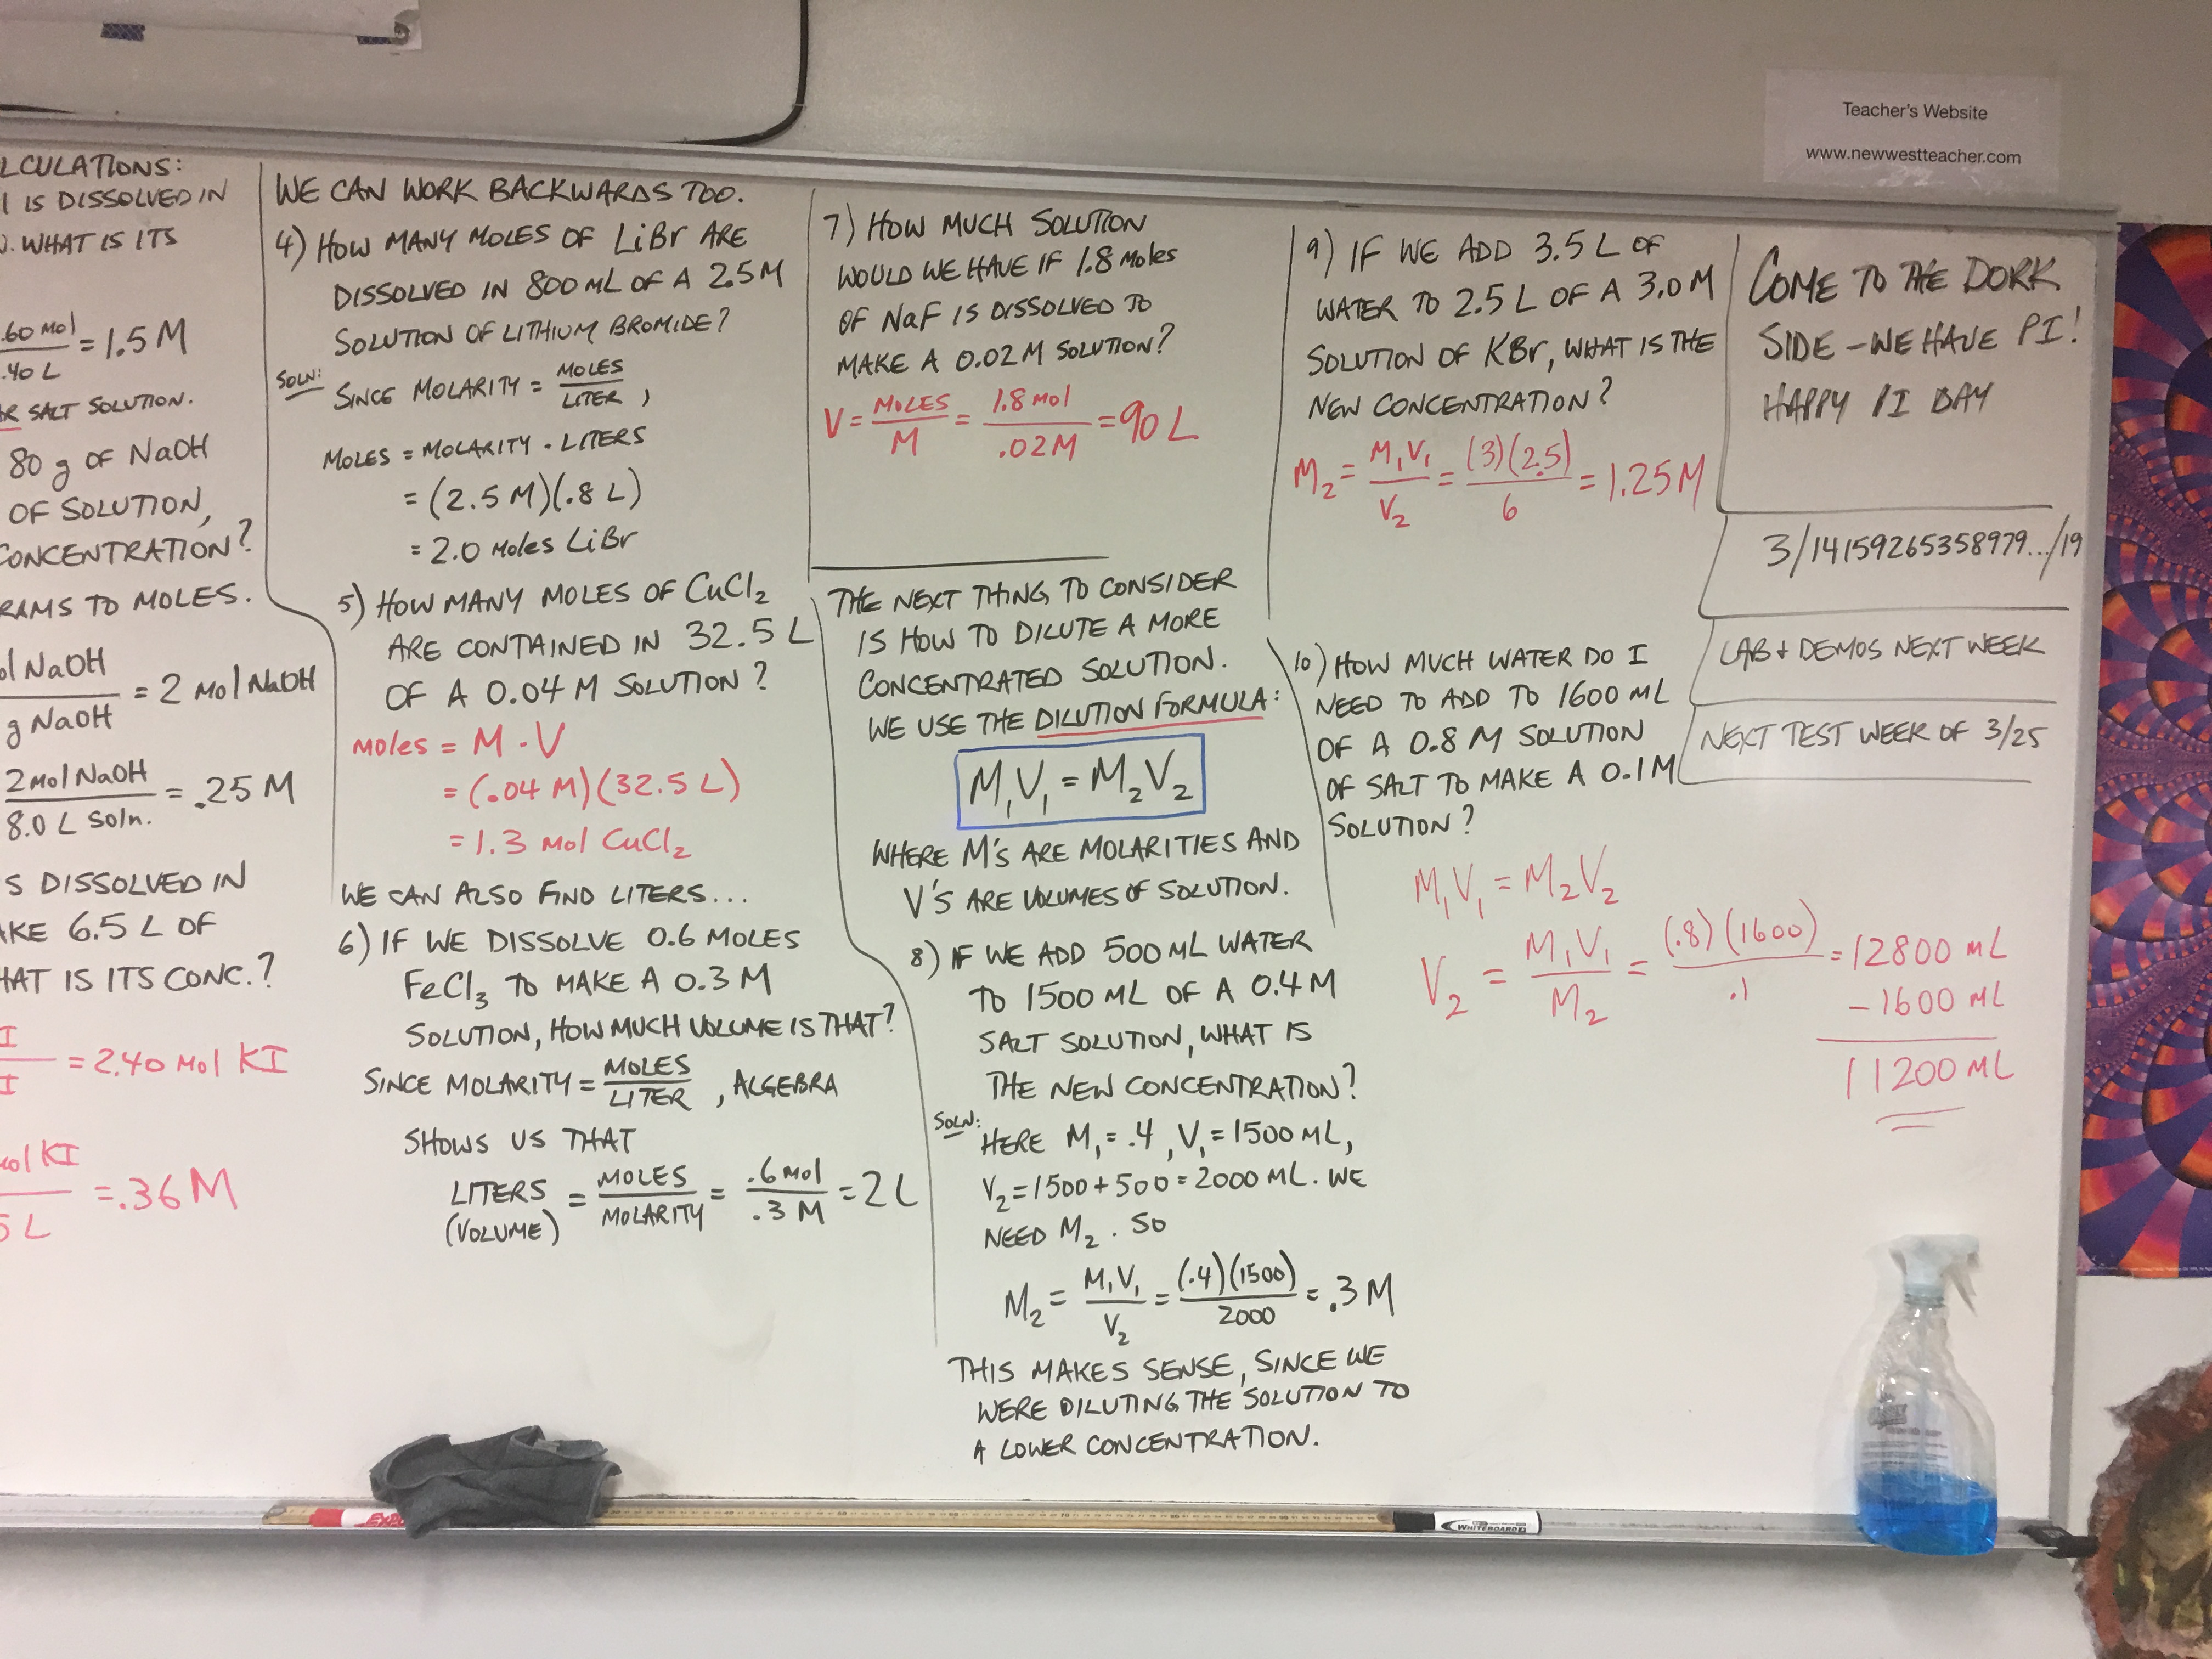 Teacher's Website
www.newwestteacher.com
LCULATIONS:
IS DISSOLVED IN
. WHAT IS ITS
.60 MOl
.40 L
= 1.5 M
R SALT SOLUTION.
80 g OF NaOH
OF SOLUTION,
CONCENTRATION?
RAMS TO MOLES.
ol NaOH
g NaOH
= 2 MOl NaOH
2 MOl NaOH
8.0 L SOln.
= .25 M
S DISSOLVED IN
AKE 6.5 L OF
HAT IS ITS CONC.?
I
I
= 2.40 MOl KI
mol KI
5 L
= .36 M
WE CAN WORK BACKWARDS TOO.
4) HOW MANY MOLES OF LiBr ARE
DISSOLVED IN 800 ML OF A 2.5 M
SOLUTION OF LITHIUM BROMIDE?
SOLN: SINCE MOLARITY = MOLES
LITER ,
MOLES = MOLARITY · LITERS
= (2.5 M)(.8 L)
= 2.0 MOLES LiBr
5) HOW MANY MOLES OF CuCl2
ARE CONTAINED IN 32.5 L
OF A 0.04 M SOLUTION?
MOLES = M · V
= (.04 M)(32.5 L)
= 1.3 MOl CuCl2
WE CAN ALSO FIND LITERS...
6) IF WE DISSOLVE 0.6 MOLES
FeCl3 TO MAKE A 0.3 M
SOLUTION, HOW MUCH VOLUME IS THAT?
SINCE MOLARITY = MOLES
LITER , ALGEBRA
SHOWS US THAT
LITERS
(VOLUME) = MOLES
MOLARITY = .6 MOl
.3 M = 2 L
7) HOW MUCH SOLUTION
WOULD WE HAVE IF 1.8 MOLES
OF NaF IS DISSOLVED TO
MAKE A 0.02 M SOLUTION?
V = MOLES
M = 1.8 MOl
.02 M = 90 L
THE NEXT THING TO CONSIDER
IS HOW TO DILUTE A MORE
CONCENTRATED SOLUTION.
WE USE THE DILUTION FORMULA:
M1V1 = M2V2
WHERE M'S ARE MOLARITIES AND
V'S ARE VOLUMES OF SOLUTION.
8) IF WE ADD 500 ML WATER
TO 1500 ML OF A 0.4 M
SALT SOLUTION, WHAT IS
THE NEW CONCENTRATION?
SOLN: HERE M1 = .4 , V1 = 1500 ML,
V2 = 1500 + 500 = 2000 ML. WE
NEED M2. SO
M2 = M1V1
V2 = (.4)(1500)
2000 = .3 M
THIS MAKES SENSE, SINCE WE
WERE DILUTING THE SOLUTION TO
A LOWER CONCENTRATION.
9) IF WE ADD 3.5 L OF
WATER TO 2.5 L OF A 3.0 M
SOLUTION OF KBr, WHAT IS THE
NEW CONCENTRATION?
M2 = M1V1
V2 = (3)(2.5)
6 = 1.25 M
10) HOW MUCH WATER DO I
NEED TO ADD TO 1600 ML
OF A 0.8 M SOLUTION
OF SALT TO MAKE A 0.1 M
SOLUTION?
M1V1 = M2V2
V2 = M1V1
M2 = (.8)(1600)
.1 = 12800 ML
- 1600 ML
11200 ML
COME TO THE DORK
SIDE - WE HAVE PI!
HAPPY PI DAY
3/14159265358979.../19
LAB + DEMOS NEXT WEEK
NEXT TEST WEEK OF 3/25
EXPO
WHITEBOARD